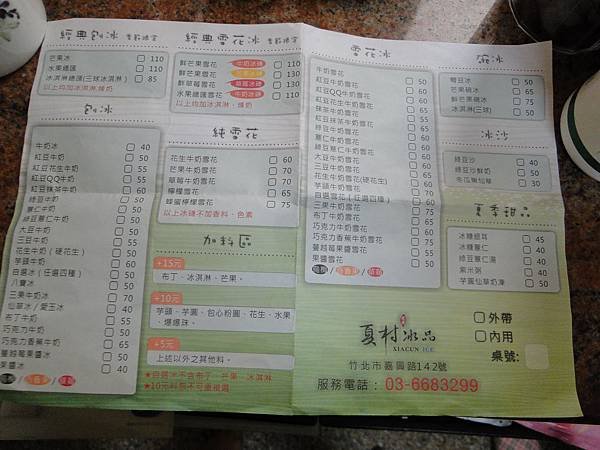 經典刨冰 季節限定
芒果冰 110
水果總匯 110
冰淇淋總匯(三球冰淇淋) 85
以上均加冰淇淋.煉奶
刨冰
牛奶冰 40
紅豆牛奶 50
紅豆花生牛奶 55
紅豆QQ牛奶 65
紅豆抹茶牛奶 60
綠豆牛奶 50
薏仁牛奶 50
綠豆薏仁牛奶 50
大豆牛奶 50
三豆牛奶 55
花生牛奶(硬花生) 50
芋頭牛奶 60
自選冰(任選四種) 50
八寶冰 50
三果牛奶冰 70
仙草冰/愛玉冰 40
布丁牛奶 55
巧克力牛奶 50
巧克力香蕉牛奶 65
蔓越莓果醬冰 50
果醬冰 40
經典雪花冰 季節限定
鮮芒果雪花 牛奶冰磚 110
鮮芒果雪花 芒果冰磚 130
鮮草莓雪花 草莓冰磚 130
水果總匯雪花 牛奶冰磚 110
以上均加冰淇淋、煉奶
純雪花
花生牛奶雪花 60
芒果牛奶雪花 70
草莓牛奶雪花 70
檸檬雪花 60
蜂蜜檸檬雪花 60
以上冰磚不加香料、色素
加料區
+15元
布丁、冰淇淋、芒果。
+10元
芋頭、芋圓、包心粉圓、花生、水果
、爆爆珠。
+5元
上述以外之其他料。
★自選冰不含布丁、芒果、冰淇淋
★10元料限不可重複選
雪花冰
牛奶雪花 50
紅豆牛奶雪花 60
紅豆QQ牛奶雪花
紅豆花生牛奶雪花
紅豆抹茶牛奶雪花
綠豆牛奶雪花
薏仁牛奶雪花
綠豆薏仁牛奶雪花
大豆牛奶雪花
三豆牛奶雪花
花生牛奶雪花(硬花生)
芋頭牛奶雪花
自選雪花(任選四種)
三果牛奶雪花
布丁牛奶雪花
巧克力牛奶雪花
巧克力香蕉牛奶雪花
蔓越莓果醬雪花
果醬雪花 50
碗冰
雪豆冰 50
芒果碗冰 65
鮮芒果碗冰 75
冰淇淋(三球) 50
冰沙
綠豆沙 40
綠豆沙鮮奶 50
冬瓜檸檬 30
夏季甜品
冰糖銀耳 45
冰糖薏仁 40
綠豆薏仁湯 35
紫米粥 40
芋圓仙草奶凍 50
夏村冰品
XIACUN ICE
外帶
內用
桌號:
竹北市嘉興路142號
服務電話: 03-6683299